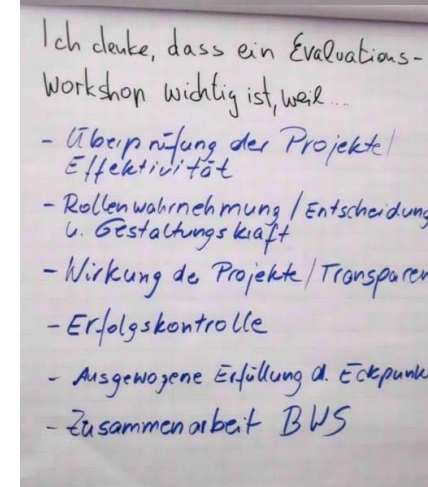 Ich denke, dass ein Evaluations-
Workshop wichtig ist, weil...
- Überprüfung der Projekte/
Effektivität
- Rollenwahrnehmung / Entscheidung
u. Gestaltungskraft
- Wirkung de Projekte / Transparen
- Erfolgskontrolle
- Ausgewogene Erfüllung d. Eckpunk
- Zusammenarbeit BWS